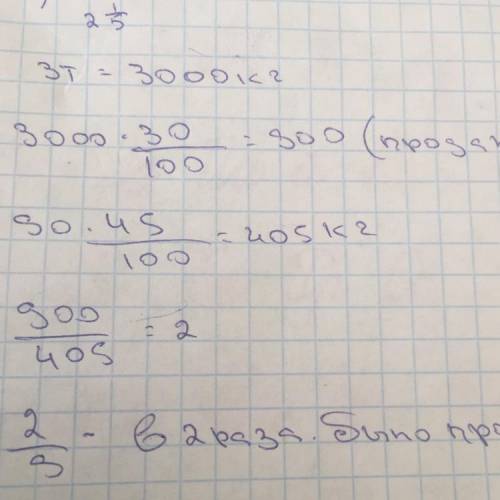 2 1/5
3т = 3000кг
3000 · 30/100 = 900 (прода
90 · 45/100 = 405кг
900/405 = 2
2/9 - в 2 раза. было про